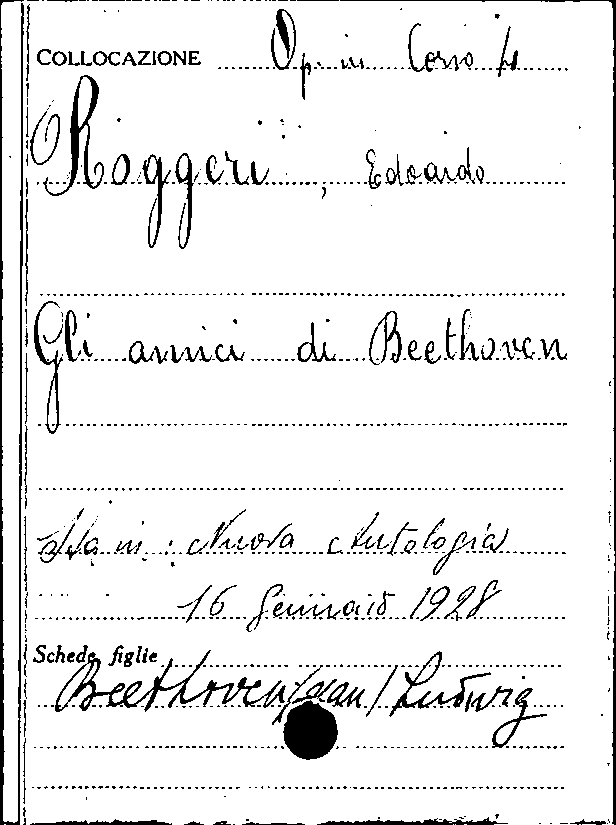 COLLOCAZIONE Op. in Corso
Roggeri, Edoardo
Gli amici di Beethoven
Sta in: Nuova Antologia
16 Gennaio 1928
Schede figlie
Beethoven (van) Ludwig